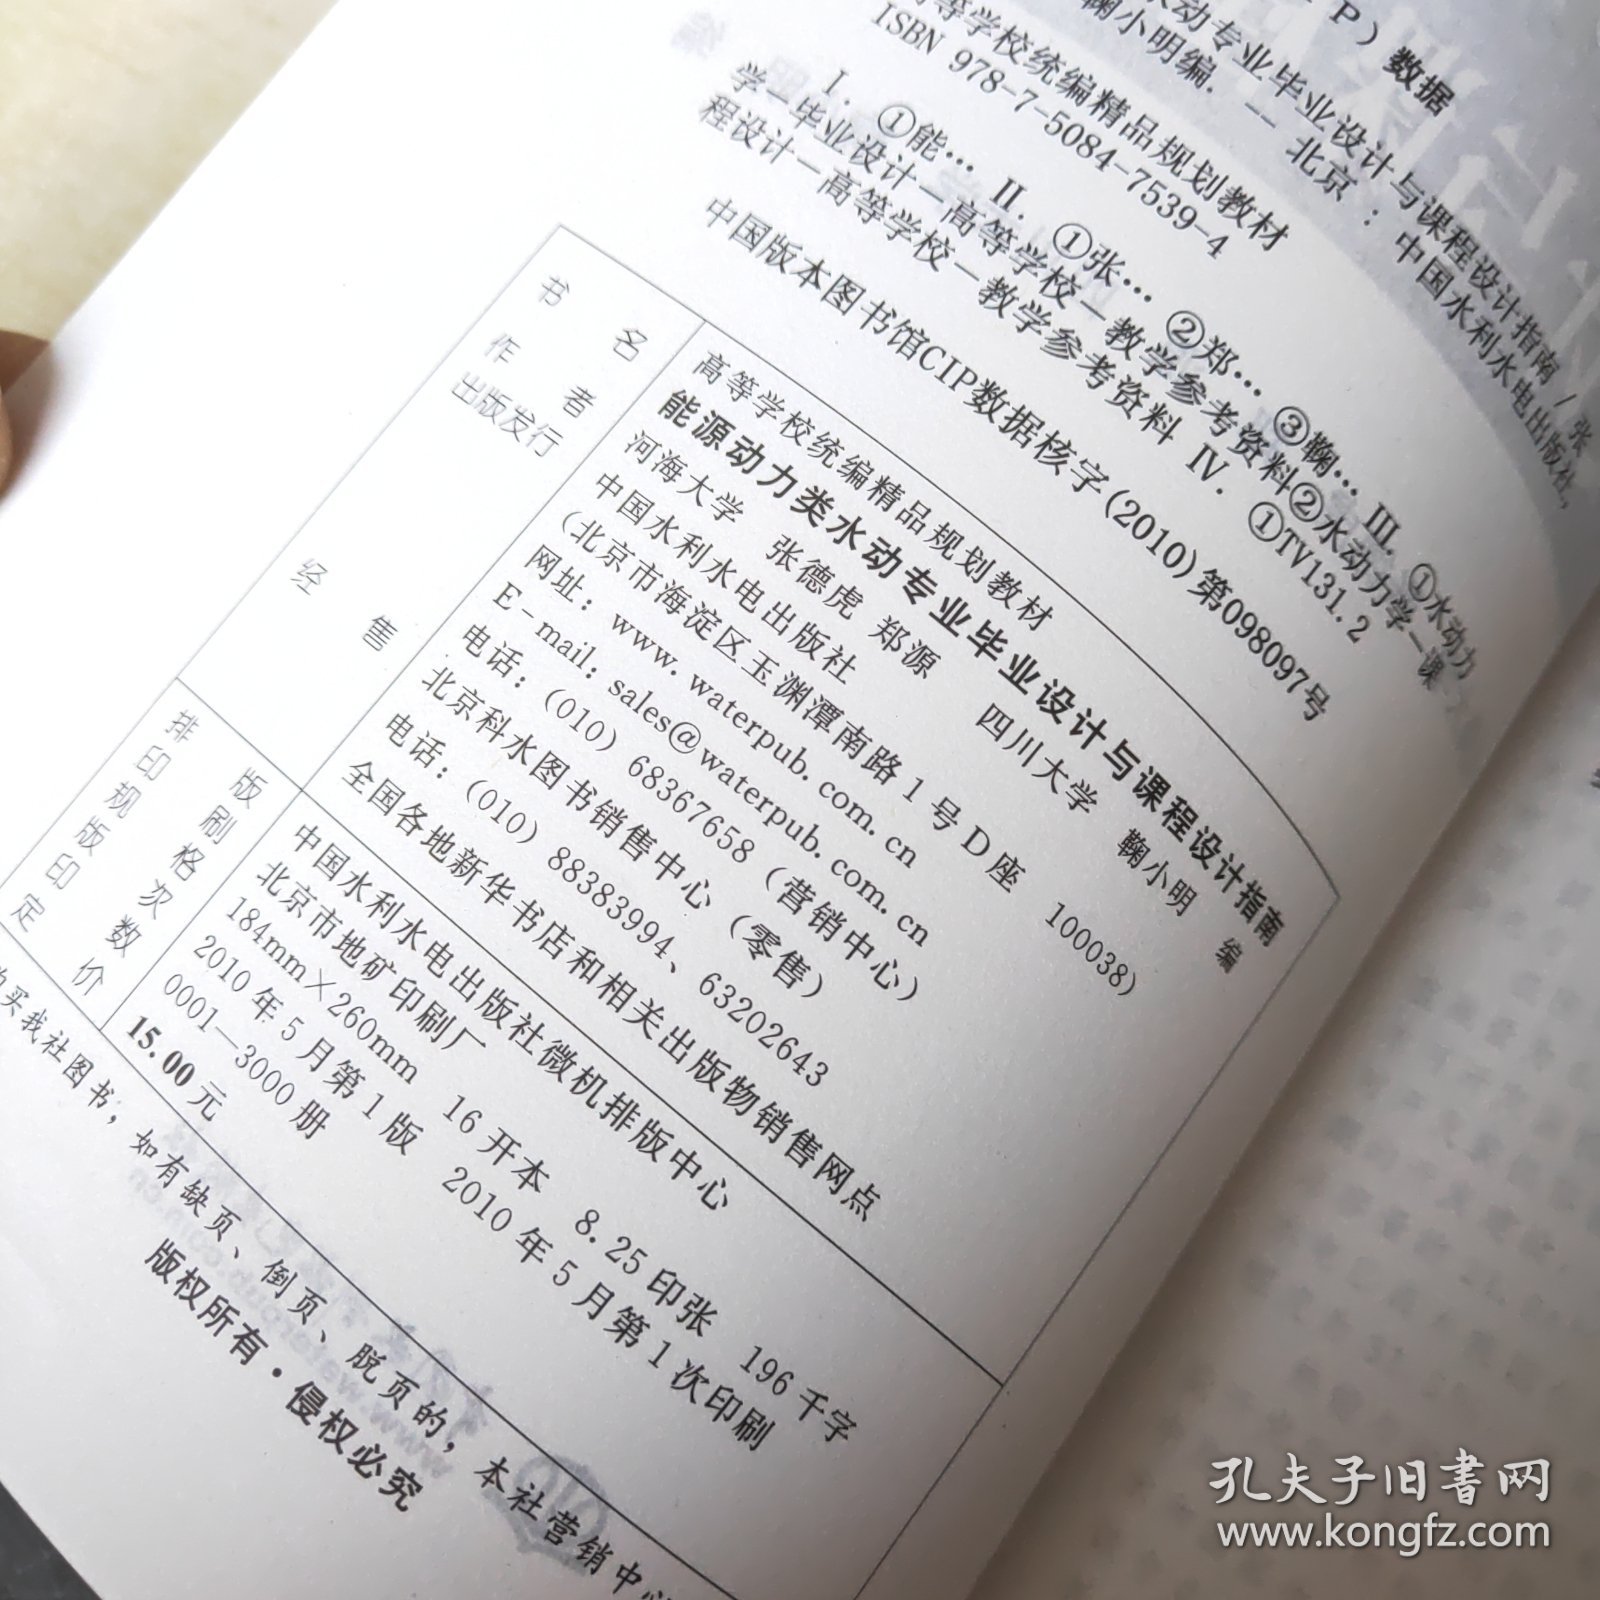 P）数据
水动专业毕业设计与课程设计指南 / 张
鞠小明编. -- 北京 : 中国水利水电出版社,
高等学校统编精品规划教材
ISBN 978-7-5084-7539-4
Ⅰ. ①能… Ⅱ. ①张… ②郑… ③鞠… Ⅲ. ①水动力
学—毕业设计—高等学校—教学参考资料②水动力学—课
程设计—高等学校—教学参考资料 Ⅳ. ①TV131.2
中国版本图书馆CIP数据核字(2010)第098097号
书 名 高等学校统编精品规划教材
能源动力类水动专业毕业设计与课程设计指南
作 者 河海大学 张德虎 郑源 四川大学 鞠小明 编
出版发行 中国水利水电出版社
（北京市海淀区玉渊潭南路1号D座 100038）
网址：www.waterpub.com.cn
E-mail：sales@waterpub.com.cn
电话：（010）68367658（营销中心）
经 售 北京科水图书销售中心（零售）
电话：（010）88383994、63202643
全国各地新华书店和相关出版物销售网点
排 版 中国水利水电出版社微机排版中心
印 刷 北京市地矿印刷厂
规 格 184mm×260mm 16开本 8.25印张 196千字
版 次 2010年5月第1版 2010年5月第1次印刷
印 数 0001—3000册
定 价 15.00元
购买我社图书，如有缺页、倒页、脱页的，本社营销中心
版权所有·侵权必究
孔夫子旧书网
www.kongfz.com